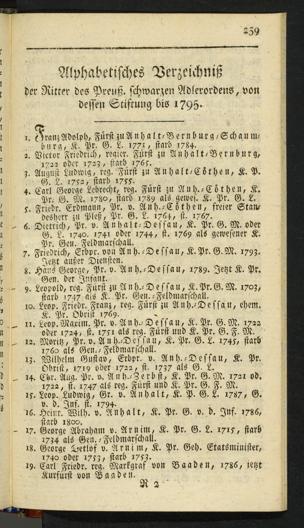 259
Alphabetisches Verzeichniß
der Ritter des Preuß. schwarzen Adlerordens, von
dessen Stiftung bis 1795.
1. Franz Adolph, Fürst zu Anhalt-Bernburg-Schaum-
burg, K. Pr. G. L. 1771, starb 1784.
2. Victor Friedrich, regier. Fürst zu Anhalt-Bernburg,
1722 oder 1723, starb 1765.
3. August Ludwig, reg. Fürst zu Anhalt-Cöthen, K. P.
G. L. 1752, starb 1755.
4. Carl George Lebrecht, reg. Fürst zu Anh.-Cöthen, K.
Pr. G. M. 1780, starb 1789 als gewes. K. Pr. G. L.
5. Friedr. Erdmann, Pr. v. Anh.-Cöthen, freier Stan-
desherr zu Pleß, Pr. G. L. 1764, st. 1767.
6. Dietrich, Pr. v. Anhalt-Dessau, K. Pr. G. M. oder
G. L. 1740. 1741 oder 1744, st. 1769 als gewesener K.
Pr. Gen. Feldmarschall.
7. Friedrich, Erbpr. von Anh.-Dessau, K. Pr. G. M. 1793.
Jetzt außer Diensten.
8. Hans George, Pr. v. Anh.-Dessau, 1789. Jetzt K. Pr.
Gen. der Infant.
9. Leopold, reg. Fürst zu Anh.-Dessau, K. Pr. G. M. 1703,
starb 1747 als K. Pr. Gen.-Feldmarschall.
10. Leop. Friedr. Franz, reg. Fürst zu Anh.-Dessau, ehem.
K. Pr. Obrist 1769.
11. Leop. Maxim. Pr. v. Anh.-Dessau, K. Pr. G. M. 1722
oder 1724, st. 1751 als reg. Fürst und K. Pr. G. F. M.
12. Moritz, Pr. v. Anh.-Dessau, K. Pr. G. L. 1745, starb
1760 als Gen.-Feldmarschall.
13. Wilhelm Gustav, Erbpr. v. Anh.-Dessau, K. Pr.
Obrist, 1719 oder 1722, st. 1737 als G. L.
14. Chr. Aug. Pr. v. Anh.-Zerbst, K. Pr. G. M. 1721 od.
1722, st. 1747 als reg. Fürst und K. Pr. G. F. M.
15. Leop. Ludwig, Gr. v. Anhalt, K. P. G. L. 1787, G.
v. d. Inf. st. 1794.
16. Heinr. Wilh. v. Anhalt, K. Pr. G. v. d. Inf. 1786,
starb 1800.
17. George Abraham v. Arnim, K. Pr. G. L. 1715, starb
1734 als Gen.-Feldmarschall.
18. George Detlof v. Arnim, K. Pr. Geh. Etatsminister,
1740 oder 1753, starb 1753.
19. Carl Friedr. reg. Markgraf von Baaden, 1786, jetzt
Kurfürst von Baaden.
R 2